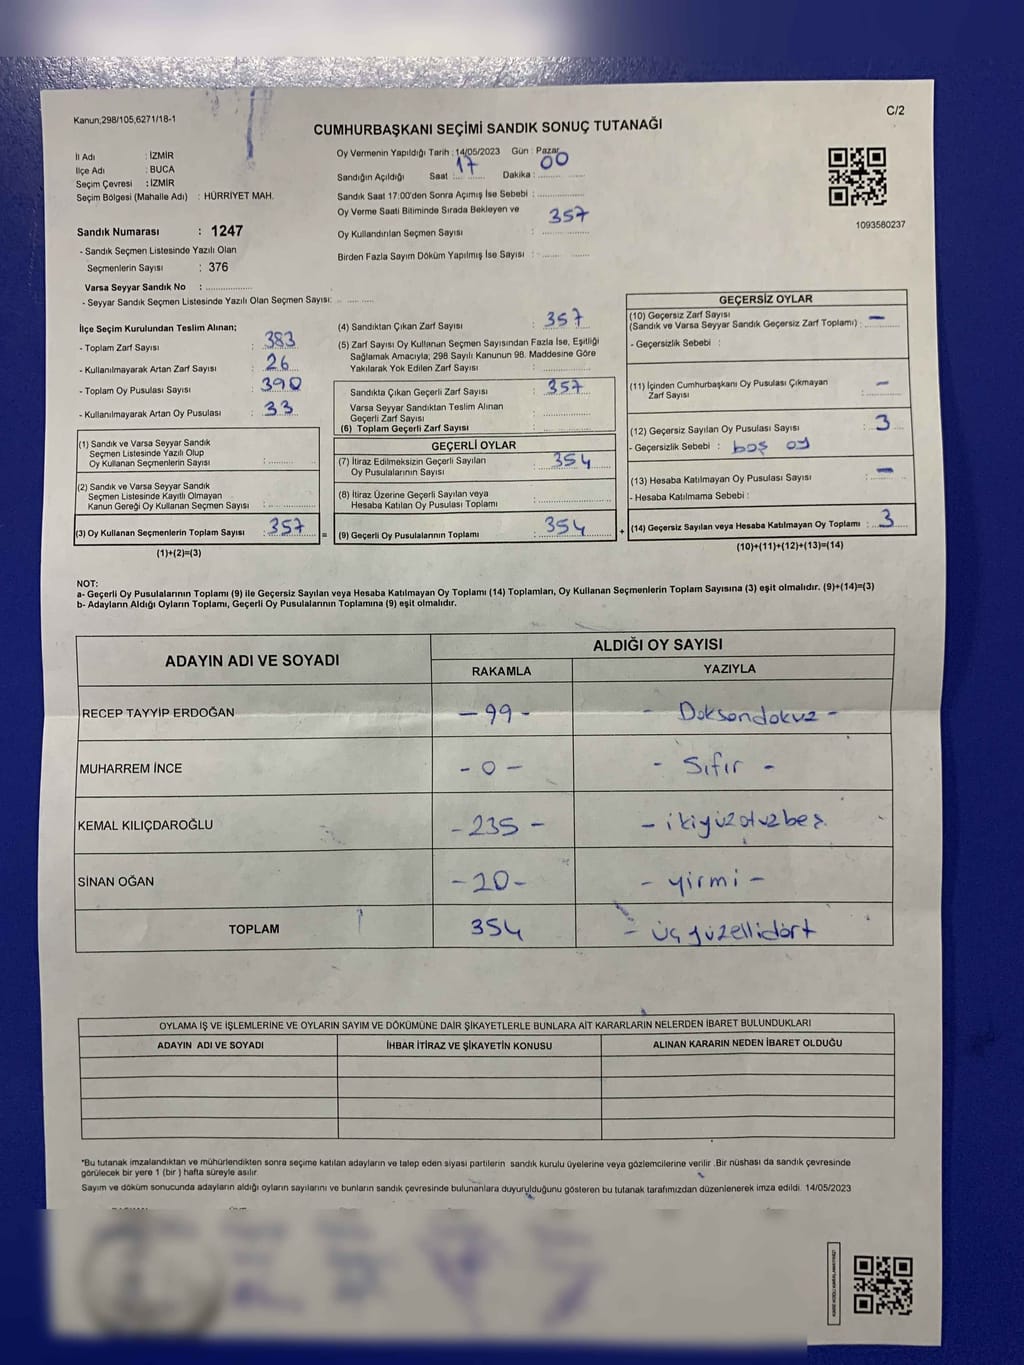 Kanun,298/105,6271/18-1
C/2
CUMHURBAŞKANI SEÇİMİ SANDIK SONUÇ TUTANAĞI
İl Adı : İZMİR
İlçe Adı : BUCA
Seçim Çevresi : İZMİR
Seçim Bölgesi (Mahalle Adı) : HÜRRİYET MAH.
Sandık Numarası : 1247
- Sandık Seçmen Listesinde Yazılı Olan
Seçmenlerin Sayısı : 376
Varsa Seyyar Sandık No :
- Seyyar Sandık Seçmen Listesinde Yazılı Olan Seçmen Sayısı:
Oy Vermenin Yapıldığı Tarih : 14/05/2023 Gün : Pazar
Sandığın Açıldığı Saat : 17 Dakika : 00
Sandık Saat 17:00'den Sonra Açımış İse Sebebi :
Oy Verme Saati Bitiminde Sırada Bekleyen ve
Oy Kullandırılan Seçmen Sayısı : 357
Birden Fazla Sayım Döküm Yapılmış İse Sayısı :
1093580237
İlçe Seçim Kurulundan Teslim Alınan;
- Toplam Zarf Sayısı : 383
- Kullanılmayarak Artan Zarf Sayısı : 26
- Toplam Oy Pusulası Sayısı : 390
- Kullanılmayarak Artan Oy Pusulası : 33
(1) Sandık ve Varsa Seyyar Sandık
Seçmen Listesinde Yazılı Olup
Oy Kullanan Seçmenlerin Sayısı :
(2) Sandık ve Varsa Seyyar Sandık
Seçmen Listesinde Kayıtlı Olmayan
Kanun Gereği Oy Kullanan Seçmen Sayısı :
(3) Oy Kullanan Seçmenlerin Toplam Sayısı : 357
(1)+(2)=(3)
=
(4) Sandıktan Çıkan Zarf Sayısı : 357
(5) Zarf Sayısı Oy Kullanan Seçmen Sayısından Fazla İse, Eşitliği
Sağlamak Amacıyla; 298 Sayılı Kanunun 98. Maddesine Göre
Yakılarak Yok Edilen Zarf Sayısı :
Sandıkta Çıkan Geçerli Zarf Sayısı : 357
Varsa Seyyar Sandıktan Teslim Alınan
Geçerli Zarf Sayısı :
(6) Toplam Geçerli Zarf Sayısı :
GEÇERLİ OYLAR
(7) İtiraz Edilmeksizin Geçerli Sayılan
Oy Pusulalarının Sayısı : 354
(8) İtiraz Üzerine Geçerli Sayılan veya
Hesaba Katılan Oy Pusulası Toplamı :
(9) Geçerli Oy Pusulalarının Toplamı : 354
+
GEÇERSİZ OYLAR
(10) Geçersiz Zarf Sayısı
(Sandık ve Varsa Seyyar Sandık Geçersiz Zarf Toplamı) : —
- Geçersizlik Sebebi :
(11) İçinden Cumhurbaşkanı Oy Pusulası Çıkmayan
Zarf Sayısı : —
(12) Geçersiz Sayılan Oy Pusulası Sayısı : 3
- Geçersizlik Sebebi : boş oy
(13) Hesaba Katılmayan Oy Pusulası Sayısı : —
- Hesaba Katılmama Sebebi :
(14) Geçersiz Sayılan veya Hesaba Katılmayan Oy Toplamı : 3
(10)+(11)+(12)+(13)=(14)
NOT:
a- Geçerli Oy Pusulalarının Toplamı (9) ile Geçersiz Sayılan veya Hesaba Katılmayan Oy Toplamı (14) Toplamları, Oy Kullanan Seçmenlerin Toplam Sayısına (3) eşit olmalıdır. (9)+(14)=(3)
b- Adayların Aldığı Oyların Toplamı, Geçerli Oy Pusulalarının Toplamına (9) eşit olmalıdır.
ADAYIN ADI VE SOYADI
ALDIĞI OY SAYISI
RAKAMLA YAZIYLA
RECEP TAYYİP ERDOĞAN - 99 - - Doksandokuz -
MUHARREM İNCE - 0 - - Sıfır -
KEMAL KILIÇDAROĞLU - 235 - - ikiyüzotuzbeş
SİNAN OĞAN - 20 - - yirmi -
TOPLAM 354 - üçyüzellidört
OYLAMA İŞ VE İŞLEMLERİNE VE OYLARIN SAYIM VE DÖKÜMÜNE DAİR ŞİKAYETLERLE BUNLARA AİT KARARLARIN NELERDEN İBARET BULUNDUKLARI
ADAYIN ADI VE SOYADI İHBAR İTİRAZ VE ŞİKAYETİN KONUSU ALINAN KARARIN NEDEN İBARET OLDUĞU
"Bu tutanak imzalandıktan ve mühürlendikten sonra seçime katılan adayların ve talep eden siyasi partilerin sandık kurulu üyelerine veya gözlemcilerine verilir .Bir nüshası da sandık çevresinde
görülecek bir yere 1 (bir ) hafta süreyle asılır.
Sayım ve döküm sonucunda adayların aldığı oyların sayılarını ve bunların sandık çevresinde bulunanlara duyurulduğunu gösteren bu tutanak tarafımızdan düzenlenerek imza edildi. 14/05/2023